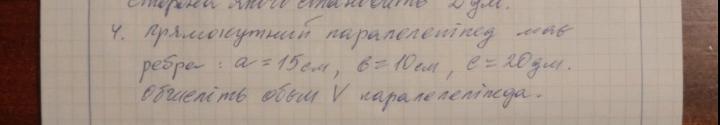 сторона якого становить 2 дм.
4. Прямокутний паралелепіпед має
ребра: a = 15 см, b = 10 см, c = 20 дм.
Обчисліть обьм V паралелепіпеда.